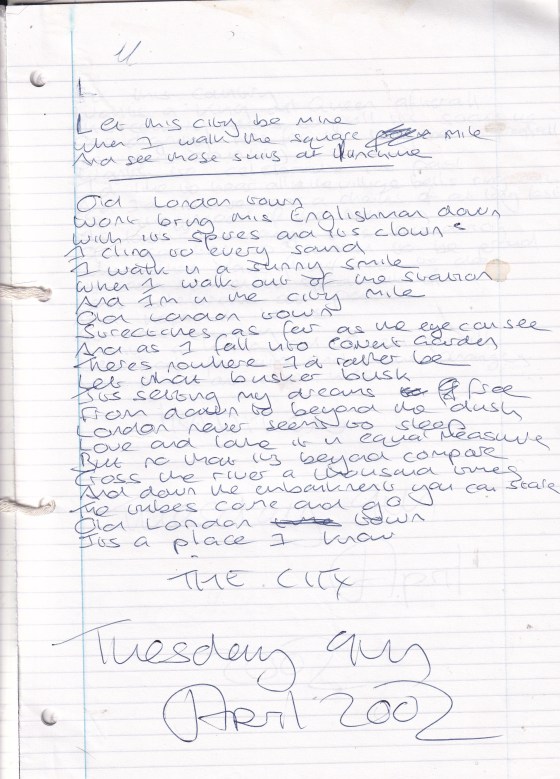 L
Let this city be mine
When I walk the square mile
And see those suits at lunchtime
Old London town
Wont bring this Englishman down
With its spires and its clowns
I cling to every sound
I walk in a sunny smile
When I walk out of the station
And I'm in the city mile
Old London town
Stretches as far as the eye can see
And as I fall into Covent Garden
Theres nowhere I'd rather be
Let that busker busk
Its setting my dreams free
From dawn to beyond the dusk
London never seems to sleep
Love and hate it in equal measure
But no that its beyond compare
Cross the river a thousand times
And down the embankment you can stare
The tribes come and go
Old London town
Its a place I know
THE CITY
Tuesday 9th
April 2002